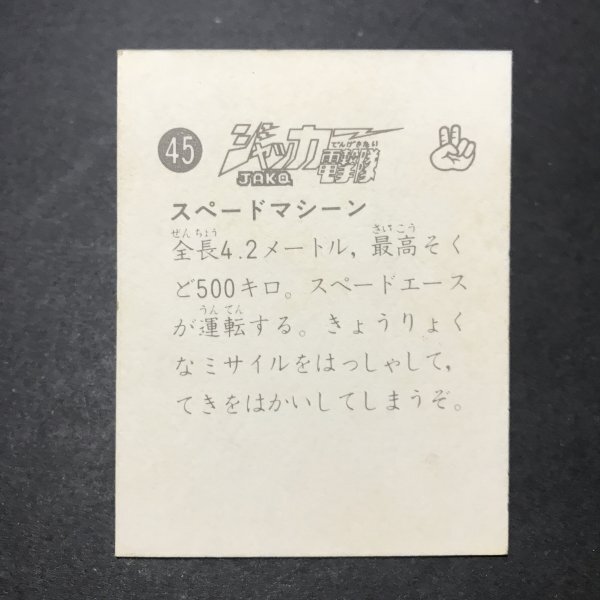 45
ジャッカー
でんげきたい
電撃隊
JAKQ
スペードマシーン
ぜんちょう さいこう
全長4.2メートル,最高そく
ど500キロ。スペードエース
うんてん
が運転する。きょうりょく
なミサイルをはっしゃして,
てきをはかいしてしまうぞ。